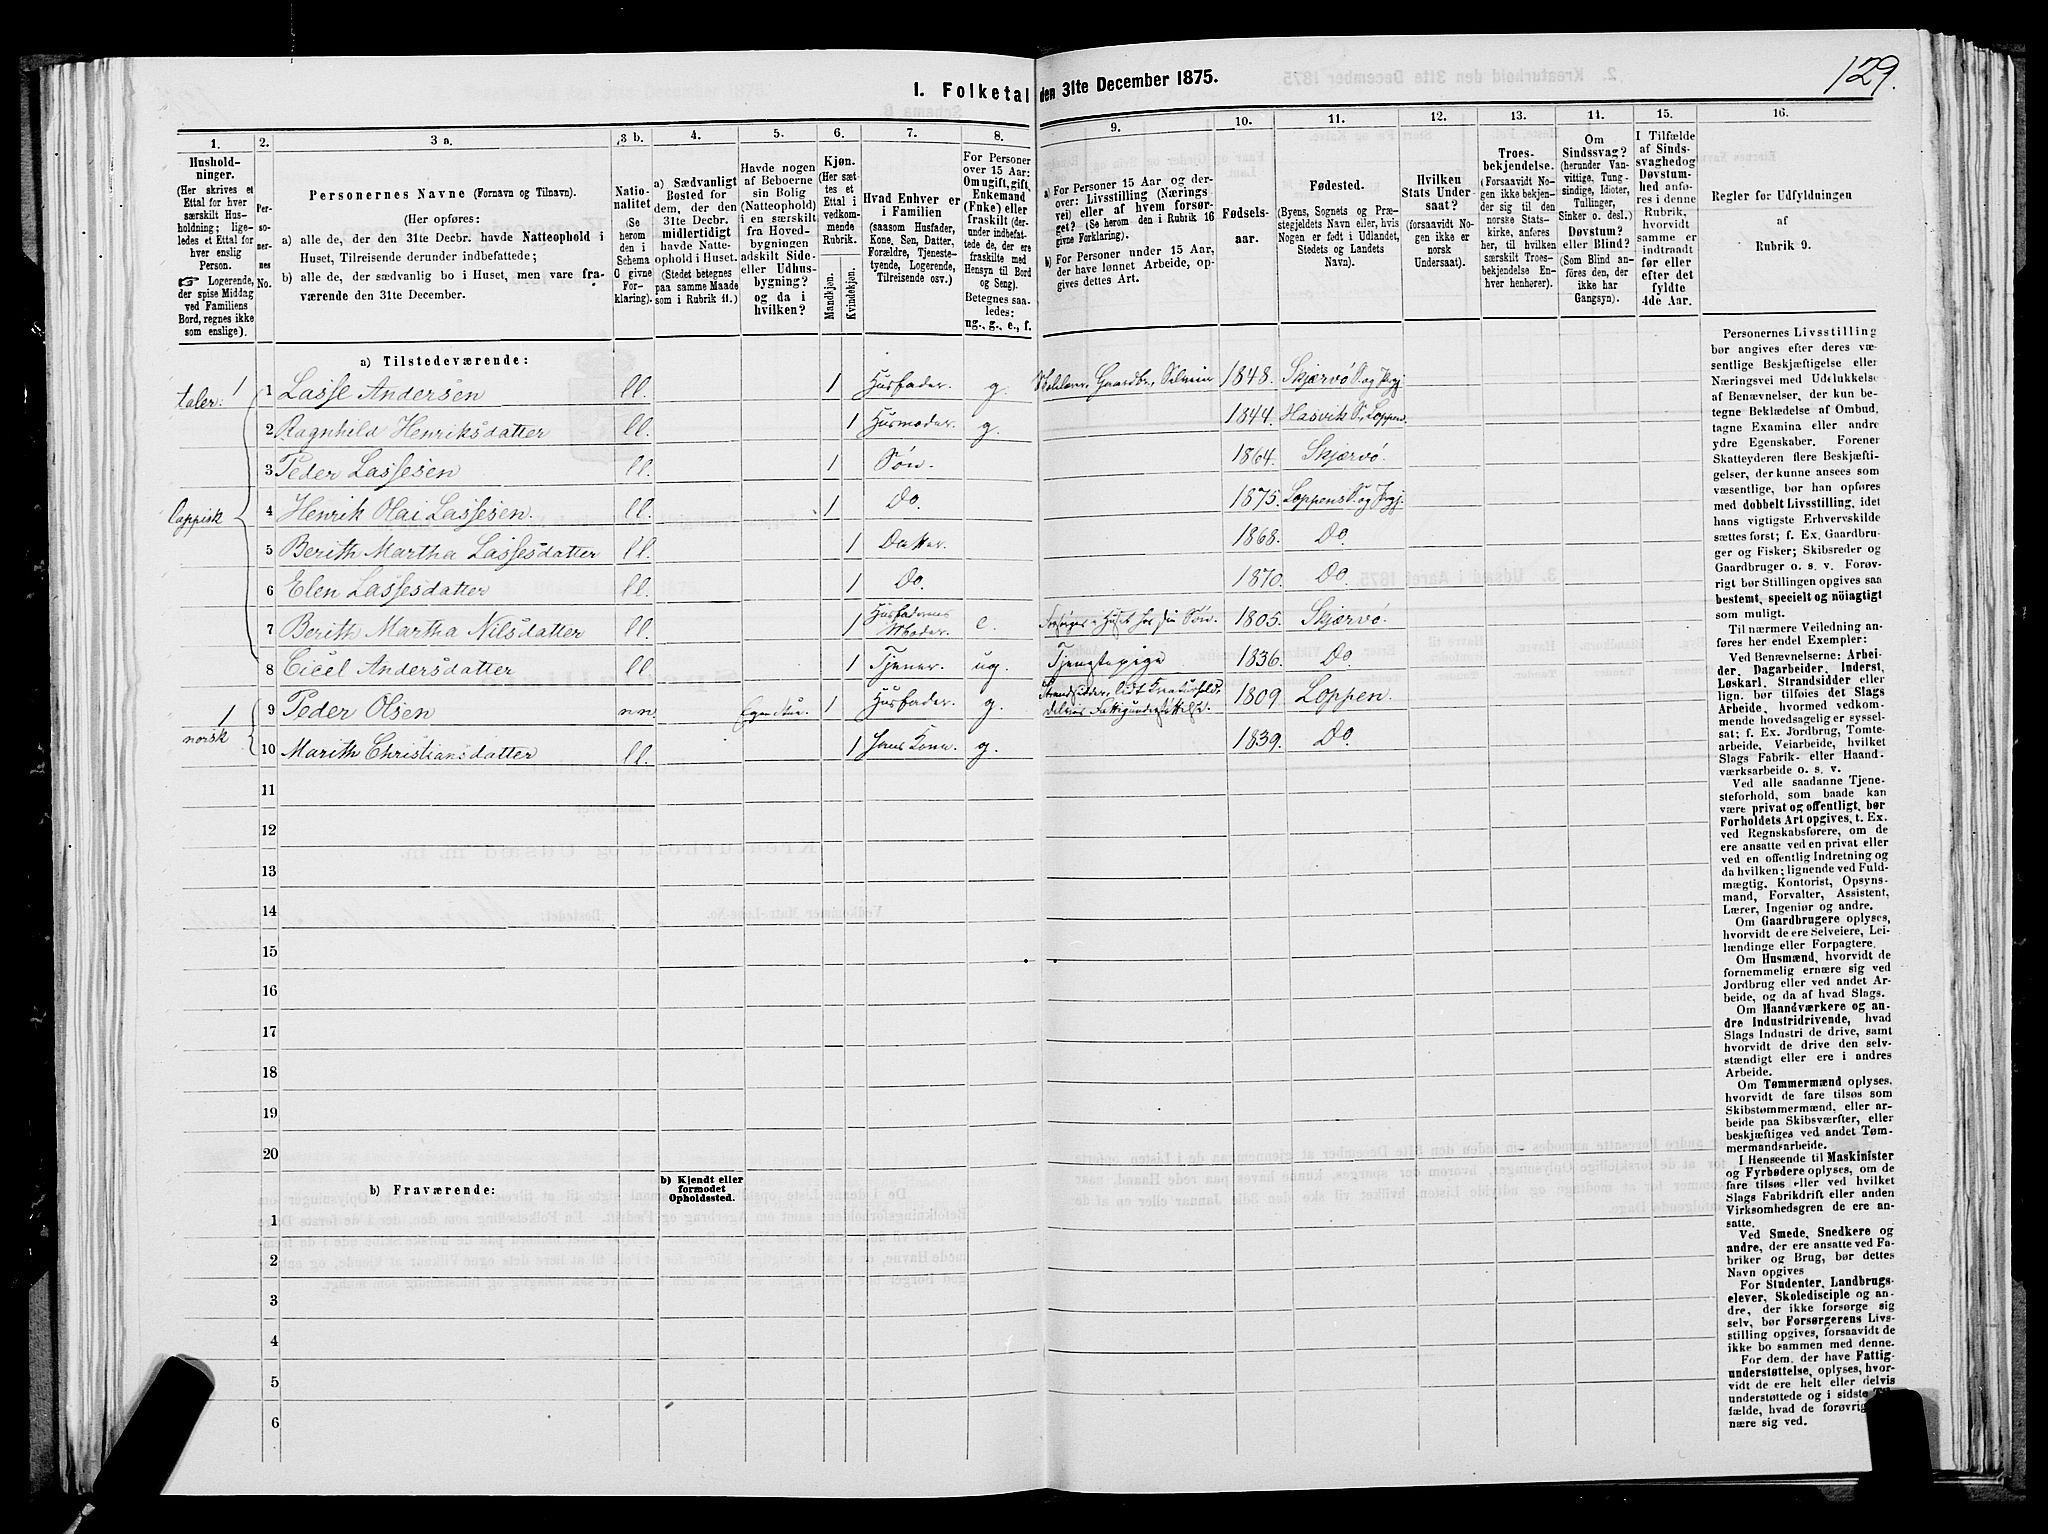 1. Folketal den 31te December 1875.
129.
1.
Hushold-
ninger.
(Her skrives et
Ettal for hver
særskilt Hus-
holdning; lige-
ledes et Ettal for
hver enslig
Person.
☞ Logerende,
der spise Middag
ved Familiens
Bord, regnes ikke
som enslige).
2.
Per-
so-
ner-
nes
No.
3 a.
Personernes Navne (Fornavn og Tilnavn).
(Her opføres:
a) alle de, der den 31te Decbr. havde Natteophold i
Huset, Tilreisende derunder indbefattede;
b) alle de, der sædvanlig bo i Huset, men vare fra-
værende den 31te December.
3 b.
Natio-
nalitet
(Se
herom
den i
Schema
C givne
For-
klaring).
4.
a) Sædvanligt
Bosted for
dem, der den
31te Decbr.
midlertidigt
havde Natte-
ophold i Huset.
(Stedet betegnes
paa samme Maade
som i Rubrik 11.)
5.
Havde nogen
af Beboerne
sin Bolig
(Natteophold)
i en særskilt
fra Hoved-
bygningen
adskilt Side-
eller Udhus-
bygning?
og da i
hvilken?
6.
Kjøn.
(Her sæt-
tes et
Ettal i
vedkom-
mende
Rubrik.
Mandkjøn.
Kvindekjøn.
7.
Hvad Enhver er
i Familien
(saasom Husfader,
Kone, Søn, Datter,
Forældre, Tjeneste-
tyende, Logerende,
Tilreisende osv.)
8.
For Personer
over 15 Aar:
Om ugift, gift,
Enkemand
(Enke) eller
fraskilt (der-
under indbefat-
tede de, der ere
fraskilte med
Hensyn til Bord
og Seng).
Betegnes saa-
ledes:
ug., g., e., f.
9.
a) For Personer 15 Aar og der-
over: Livsstilling (Nærings
vei) eller af hvem forsør-
get? (Se herom den i Rubrik 16
givne Forklaring).
b) For Personer under 15 Aar,
der have lønnet Arbeide, op-
gives dettes Art.
10.
Fødsels-
aar.
11.
Fødested.
(Byens, Sognets og Præ-
stegjeldets Navn eller, hvis
Nogen er født i Udlandet,
Stedets og Landets
Navn).
12.
Hvilken
Stats Under-
saat?
(forsaavidt No-
gen ikke er
norsk
Undersaat).
13.
Troes-
bekjendelse.
(Forsaavidt No-
gen ikke bekjen-
der sig til den
norske Stats-
kirke, anføres
her, til hvilken
særskilt Troes-
bekjendelse En-
hver henhører).
14.
Om
Sindssvag?
(herunder Van-
vittige, Tung-
sindige, Idioter,
Tullinger,
Sinker o. desl.)
Døvstum?
eller Blind?
(Som Blind an-
føres den, der
ikke har
Gangsyn).
15.
I Tilfælde
af Sinds-
svaghed og
Døvstum-
hed anfø-
res i denne
Rubrik,
hvorvidt
samme er
indtraadt
før eller
efter det
fyldte
4de Aar.
16.
Regler for Udfyldningen
af
Rubrik 9.
a) Tilstedeværende:
taler: 1
lappisk
1 Lasse Andersen ll. 1 Husfader. g. Gaardbr., Selveier 1848. Skjærvø S. og Prgj.
2 Ragnhild Henriksdatter ll. 1 Husmoder. g. 1844. Hasvik S. Loppen.
3 Peder Lassesen ll. 1 Søn. 1864. Skjærvø.
4 Henrik Olai Lassesen. ll. 1 Do. 1875. Loppens S. og Prgj.
5 Berith Martha Lassesdatter ll. 1 Datter. 1868. Do.
6 Elen Lassesdatter ll. 1 Do. 1870. Do.
7 Berith Martha Nilsdatter ll. 1 Husfaderns Moder. e. Forsørges i Huset hos sin Søn. 1805. Skjærvø.
8 Cicel Andersdatter ll. 1 Tjener. ug. Tjenstepige 1836. Do.
1
norisk
9 Peder Olsen nn. Egen Stue. 1 Husfader. g. Strandsidder, lidt Kreaturhold, delvis Fattigunderstøttelse. 1809. Loppen
10 Marith Christiansdatter ll. 1 hans Kone. g. 1839. Do.
11
12
13
14
15
16
17
18
19
20
b) Fraværende:
b) Kjendt eller
formodet
Opholdssted.
1
2
3
4
5
6
Personernes Livsstilling
bør angives efter deres væ-
sentlige Beskjæftigelse eller
Næringsvei med Udelukkelse
af Benævnelser, der kun be-
tegne Beklædelse af Ombud,
tagne Examina eller andre
ydre Egenskaber. Forener
Skatteyderen flere Beskjæfti-
gelser, der kunne ansees som
væsentlige, bør han opføres
med dobbelt Livsstilling, idet
hans vigtigste Erhvervskilde
sættes først; f. Ex. Gaardbru-
ger og Fisker; Skibsreder og
Gaardbruger o. s. v. Forøv-
rigt bør Stillingen opgives saa
bestemt, specielt og nøiagtigt
som muligt.
Til nærmere Veiledning an-
føres her endel Exempler:
Ved Benævnelserne: Arbei-
der, Dagarbeider, Inderst,
Løskarl, Strandsidder eller
lign. bør tilføies det Slags
Arbeide, hvormed vedkom-
mende hovedsagelig er syssel-
sat; f. Ex. Jordbrug, Tomte-
arbeide, Veiarbeide, hvilket
Slags Fabrik- eller Haand-
værksarbeide o. s. v.
Ved alle saadanne Tjene-
steforhold, som baade kan
være privat og offentligt, bør
Forholdets Art opgives, t. Ex.
ved Regnskabsførere, om de
ere ansatte ved en privat eller
ved en offentlig Indretning og
da hvilken; lignende ved Fuld-
mægtig, Kontorist, Opsyns-
mand, Forvalter, Assistent,
Lærer, Ingeniør og andre.
Om Gaardbrugere oplyses,
hvorvidt de ere Selveiere, Lei-
lændinge eller Forpagtere.
Om Husmænd, hvorvidt de
fornemmelig ernære sig ved
Jordbrug eller ved andet Ar-
beide, og da af hvad Slags.
Om Haandværkere og an-
dre Industridrivende, hvad
Slags Industri de drive, samt
hvorvidt de drive den selv-
stændigt eller ere i andres
Arbeide.
Om Tømmermænd oplyses,
hvorvidt de fare tilsøs som
Skibstømmermænd, eller ar-
beide paa Skibsværfter, eller
beskjæftiges ved andet Tøm-
mermandsarbeide.
I Henseende til Maskinister
og Fyrbødere oplyses, om de
fare tilsøs eller ved hvilket
Slags Fabrikdrift eller anden
Virksomhedsgren de ere an-
satte.
Ved Smede, Snedkere og
andre, der ere ansatte ved Fa-
briker og Brug, bør dettes
Navn opgives
For Studenter, Landbrugs-
elever, Skoledisciple og an-
dre, der ikke forsørge sig
selv, bør Forsørgerens Livs-
stilling opgives, forsaavidt de
ikke bo sammen med denne.
For dem, der have Fattig-
understøttelse, oplyses, hvor-
vidt de ere helt eller delvis
understøttede og i sidste Til-
fælde, hvad de forøvrig
nære sig ved.